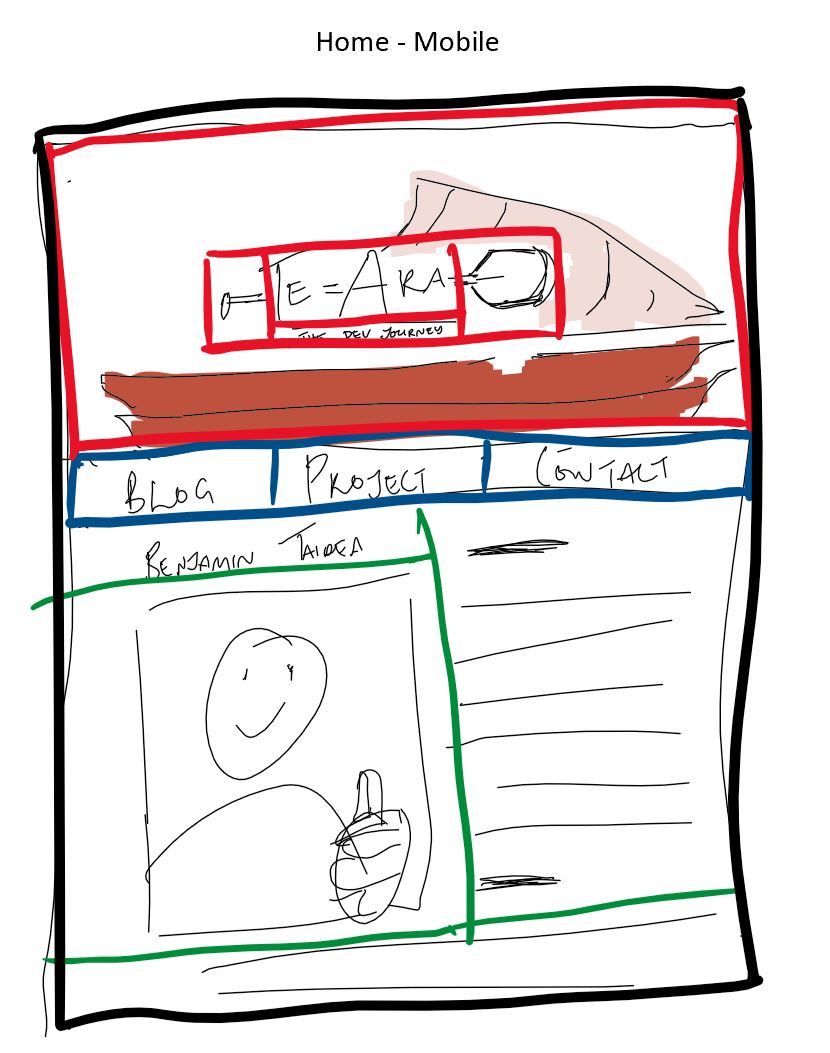 Home - Mobile
TE = ARA
THE DEV JOURNEY
BLOG PROJECT CONTACT
BENJAMIN